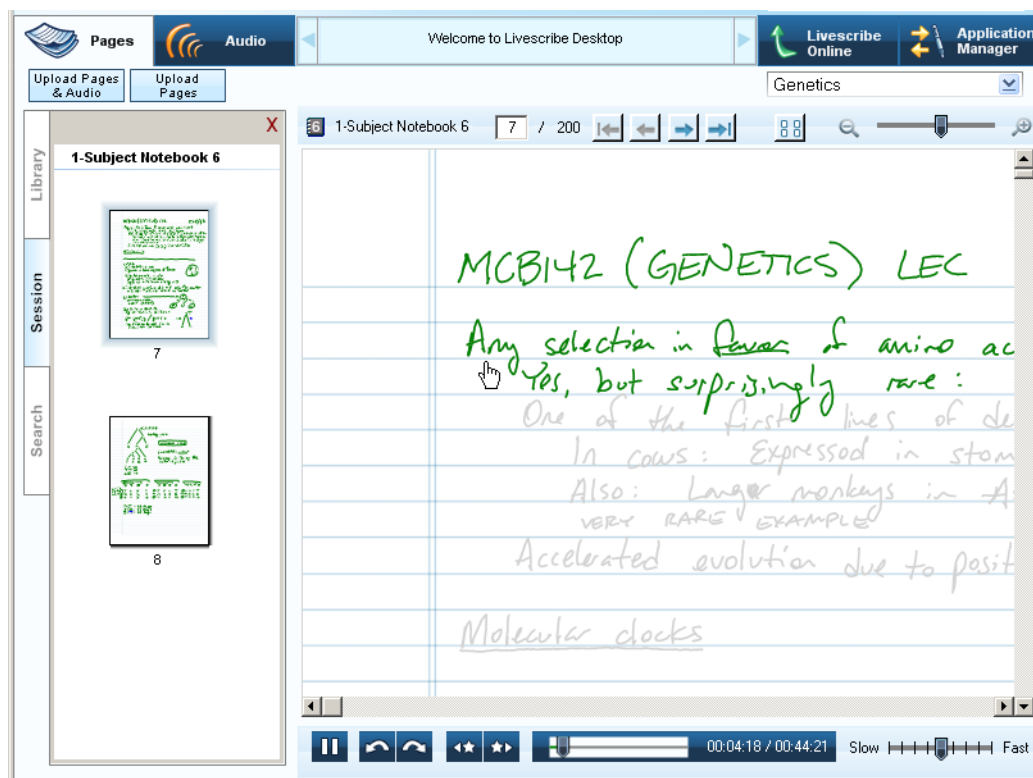 Pages
Audio
Welcome to Livescribe Desktop
Livescribe Online
Application Manager
Upload Pages & Audio
Upload Pages
Genetics
Library
Session
Search
X
1-Subject Notebook 6
7
8
6 1-Subject Notebook 6 7 / 200
MCB142 (GENETICS) LEC
Any selection in favor of amino ac
Yes, but surprisingly rare:
One of the first lines of de
In cows: Expressed in stom
Also: Langer monkeys in A
VERY RARE EXAMPLE
Accelerated evolution due to posit
Molecular clocks
00:04:18 / 00:44:21 Slow Fast